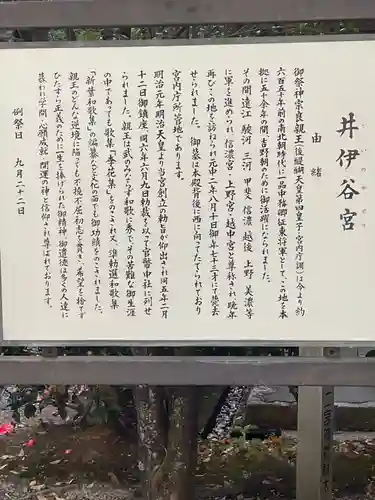 井伊谷宮
由緒
御祭神宗良親王(後醍醐天皇第四皇子・宮内庁調)は今より約
六百五十年前の南北朝時代に一品中務卿征東将軍として、この地を本
拠に五十余年の間、吉野朝のために御活躍になられました。
その間遠江 駿河 三河 甲斐 信濃 越後 上野 美濃等
に軍を進められ、信濃宮・上野宮・越中宮と尊称され、晩年
再びこの地を訪ねられ元中二年八月十日御年七十三才にて薨去
せられました。御墓は本殿背後に西に向さてたてられており
宮内庁所管地であります。
明治元年明治天皇より当宮創立の勅旨が仰出され同五年二月
十二日御鎮座、同六年六月九日勅裁を以って官幣中社に列せ
られました。親王は武のみならず和歌に秀で、その苦難な御生涯
の中であっても歌集『李花集』をのこされ、又、准勅選和歌集
『新葉和歌集』の編纂など文化の面でも御功績をのこされました。
親王のどんな逆境に陥ても不撓不屈の志を貫き、希望を捨てず
ひたすら正義のために一生を捧げられた御精神、御遺徳は多くの人達に
慕われ学問・心願成就・開運の神と信仰され尊ばれております。
例祭日 九月二十二日